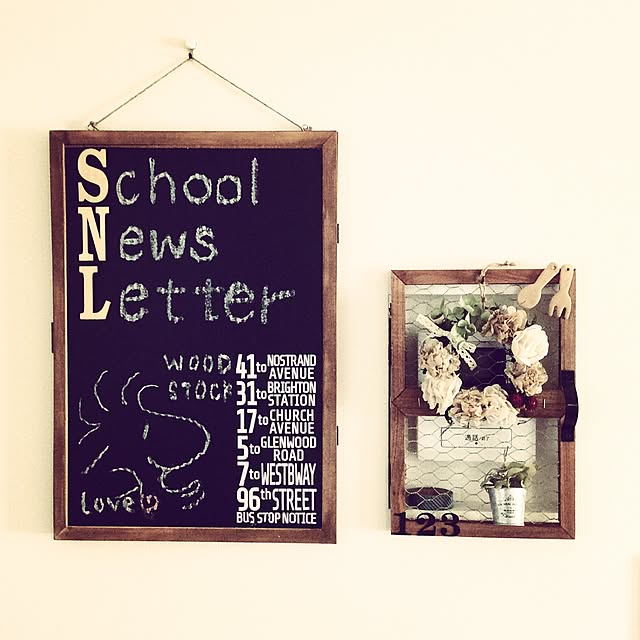 School
News
Letter
WOOD
STOCK
love
41 to NOSTRAND AVENUE
31 to BRIGHTON STATION
17 to CHURCH AVENUE
5 to GLENWOOD ROAD
7 to WESTBWAY
96th STREET
BUS STOP NOTICE
123